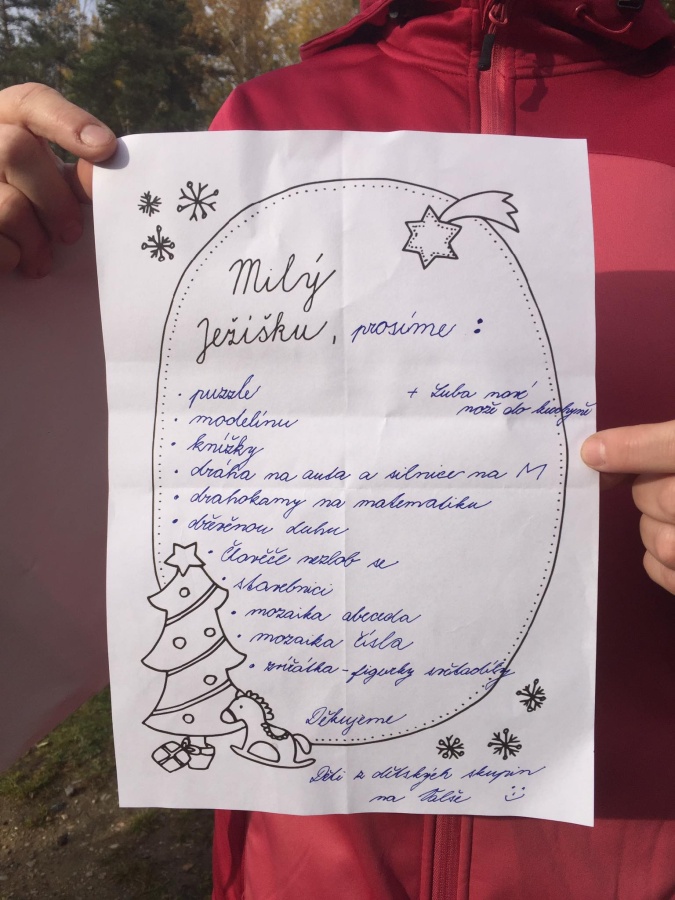 Milý
Ježíšku, prosíme :
• puzzle
+ Luba nové
nože do kuchyně
• modelínu
• knížky
• dráha na auta a silnice na M
• drahokamy na matematiku
• dřěvěnou duhu
• Člověče nezlob se
• stavebnici
• mozaika abeceda
• mozaika čísla
• zvířátka - figurky světadíly
Děkujeme
Děti z dětských skupin
na Valše :)